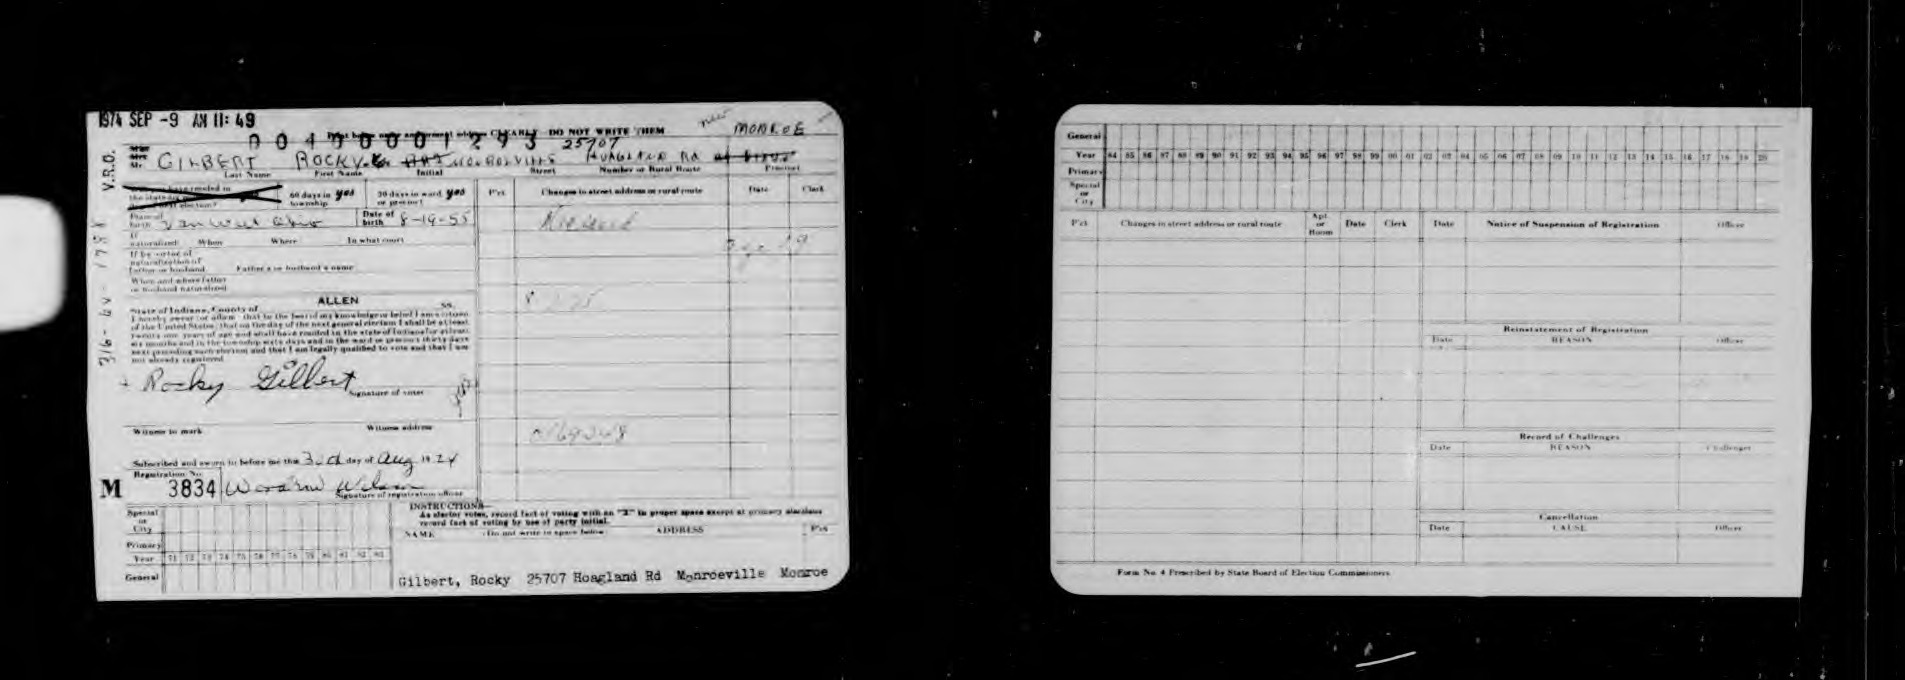 1974 SEP -9 AM 11:49
0040001293
Print below name and present address CLEARLY DO NOT WRITE THEM
new MONROE
25707
V.R.O.
Mr. GILBERT ROCKY MONROEVILLE HOAGLAND RD
Last Name First Name Initial Street Number or Rural Route Precinct
Have you resided in the state six months before next election?
60 days in township yes
30 days in ward or precinct yes
Place of birth Van Wert Ohio
Date of birth 8-19-55
If naturalized: When Where In what court
If by virtue of naturalization of father or husband. Father's or husband's name
When and where father or husband naturalized
ALLEN
State of Indiana, County of ss.
I hereby swear (or affirm) that to the best of my knowledge or belief I am a citizen
of the United States; that on the day of the next general election I shall be at least
twenty-one years of age and shall have resided in the state of Indiana for at least
six months and in the township sixty days and in the ward or precinct thirty days
next preceding such election and that I am legally qualified to vote and that I am
not already registered
Rocky Gilbert
Signature of voter
Witness to mark Witness address
Subscribed and sworn to before me this 3rd day of Aug 1974
Registration No.
M 3834 Woodrow Wilson
Signature of registration officer
Pct. Changes in street address or rural route Date Clerk
Special or City
Primary
Year 71 72 73 74 75 76 77 78 79 80 81 82 83
General
INSTRUCTIONS—
As elector votes, record fact of voting with an "X" in proper space except at primary elections
record fact of voting by use of party initial.
NAME (Do not write in space below) ADDRESS Pct.
Gilbert, Rocky 25707 Hoagland Rd Monroeville Monroe
General
Year 84 85 86 87 88 89 90 91 92 93 94 95 96 97 98 99 00 01 02 03 04 05 06 07 08 09 10 11 12 13 14 15 16 17 18 19 20
Primary
Special or City
Pct. Changes in street address or rural route Apt. or Room Date Clerk
Date Notice of Suspension of Registration Officer
Reinstatement of Registration
Date REASON Officer
Record of Challenges
Date REASON Challenger
Cancellation
Date CAUSE Officer
Form No. 4 Prescribed by State Board of Election Commissioners